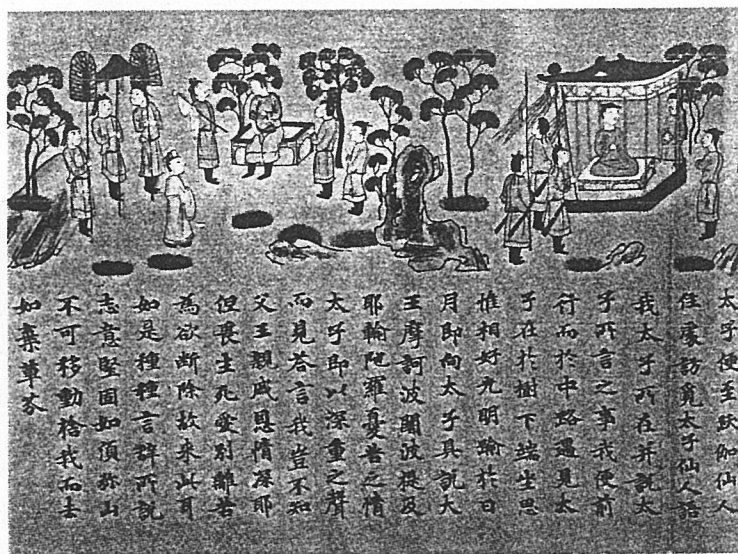 太子便至跋伽仙人
住處訪覓太子仙人語
我太子所在并說太
子所言之事我便前
行而於中路遇見太
子在於樹下端坐思
惟相好光明踰於日
月即向太子具說大
王摩訶波闍波提及
耶輸陀羅憂苦之情
太子即以深重之聲
而見答言我豈不知
父王親戚恩情深耶
但畏生死愛別離苦
為欲斷除故來此耳
如是種種言辭所說
志意堅固如須弥山
不可移動捨我而去
如棄草芥